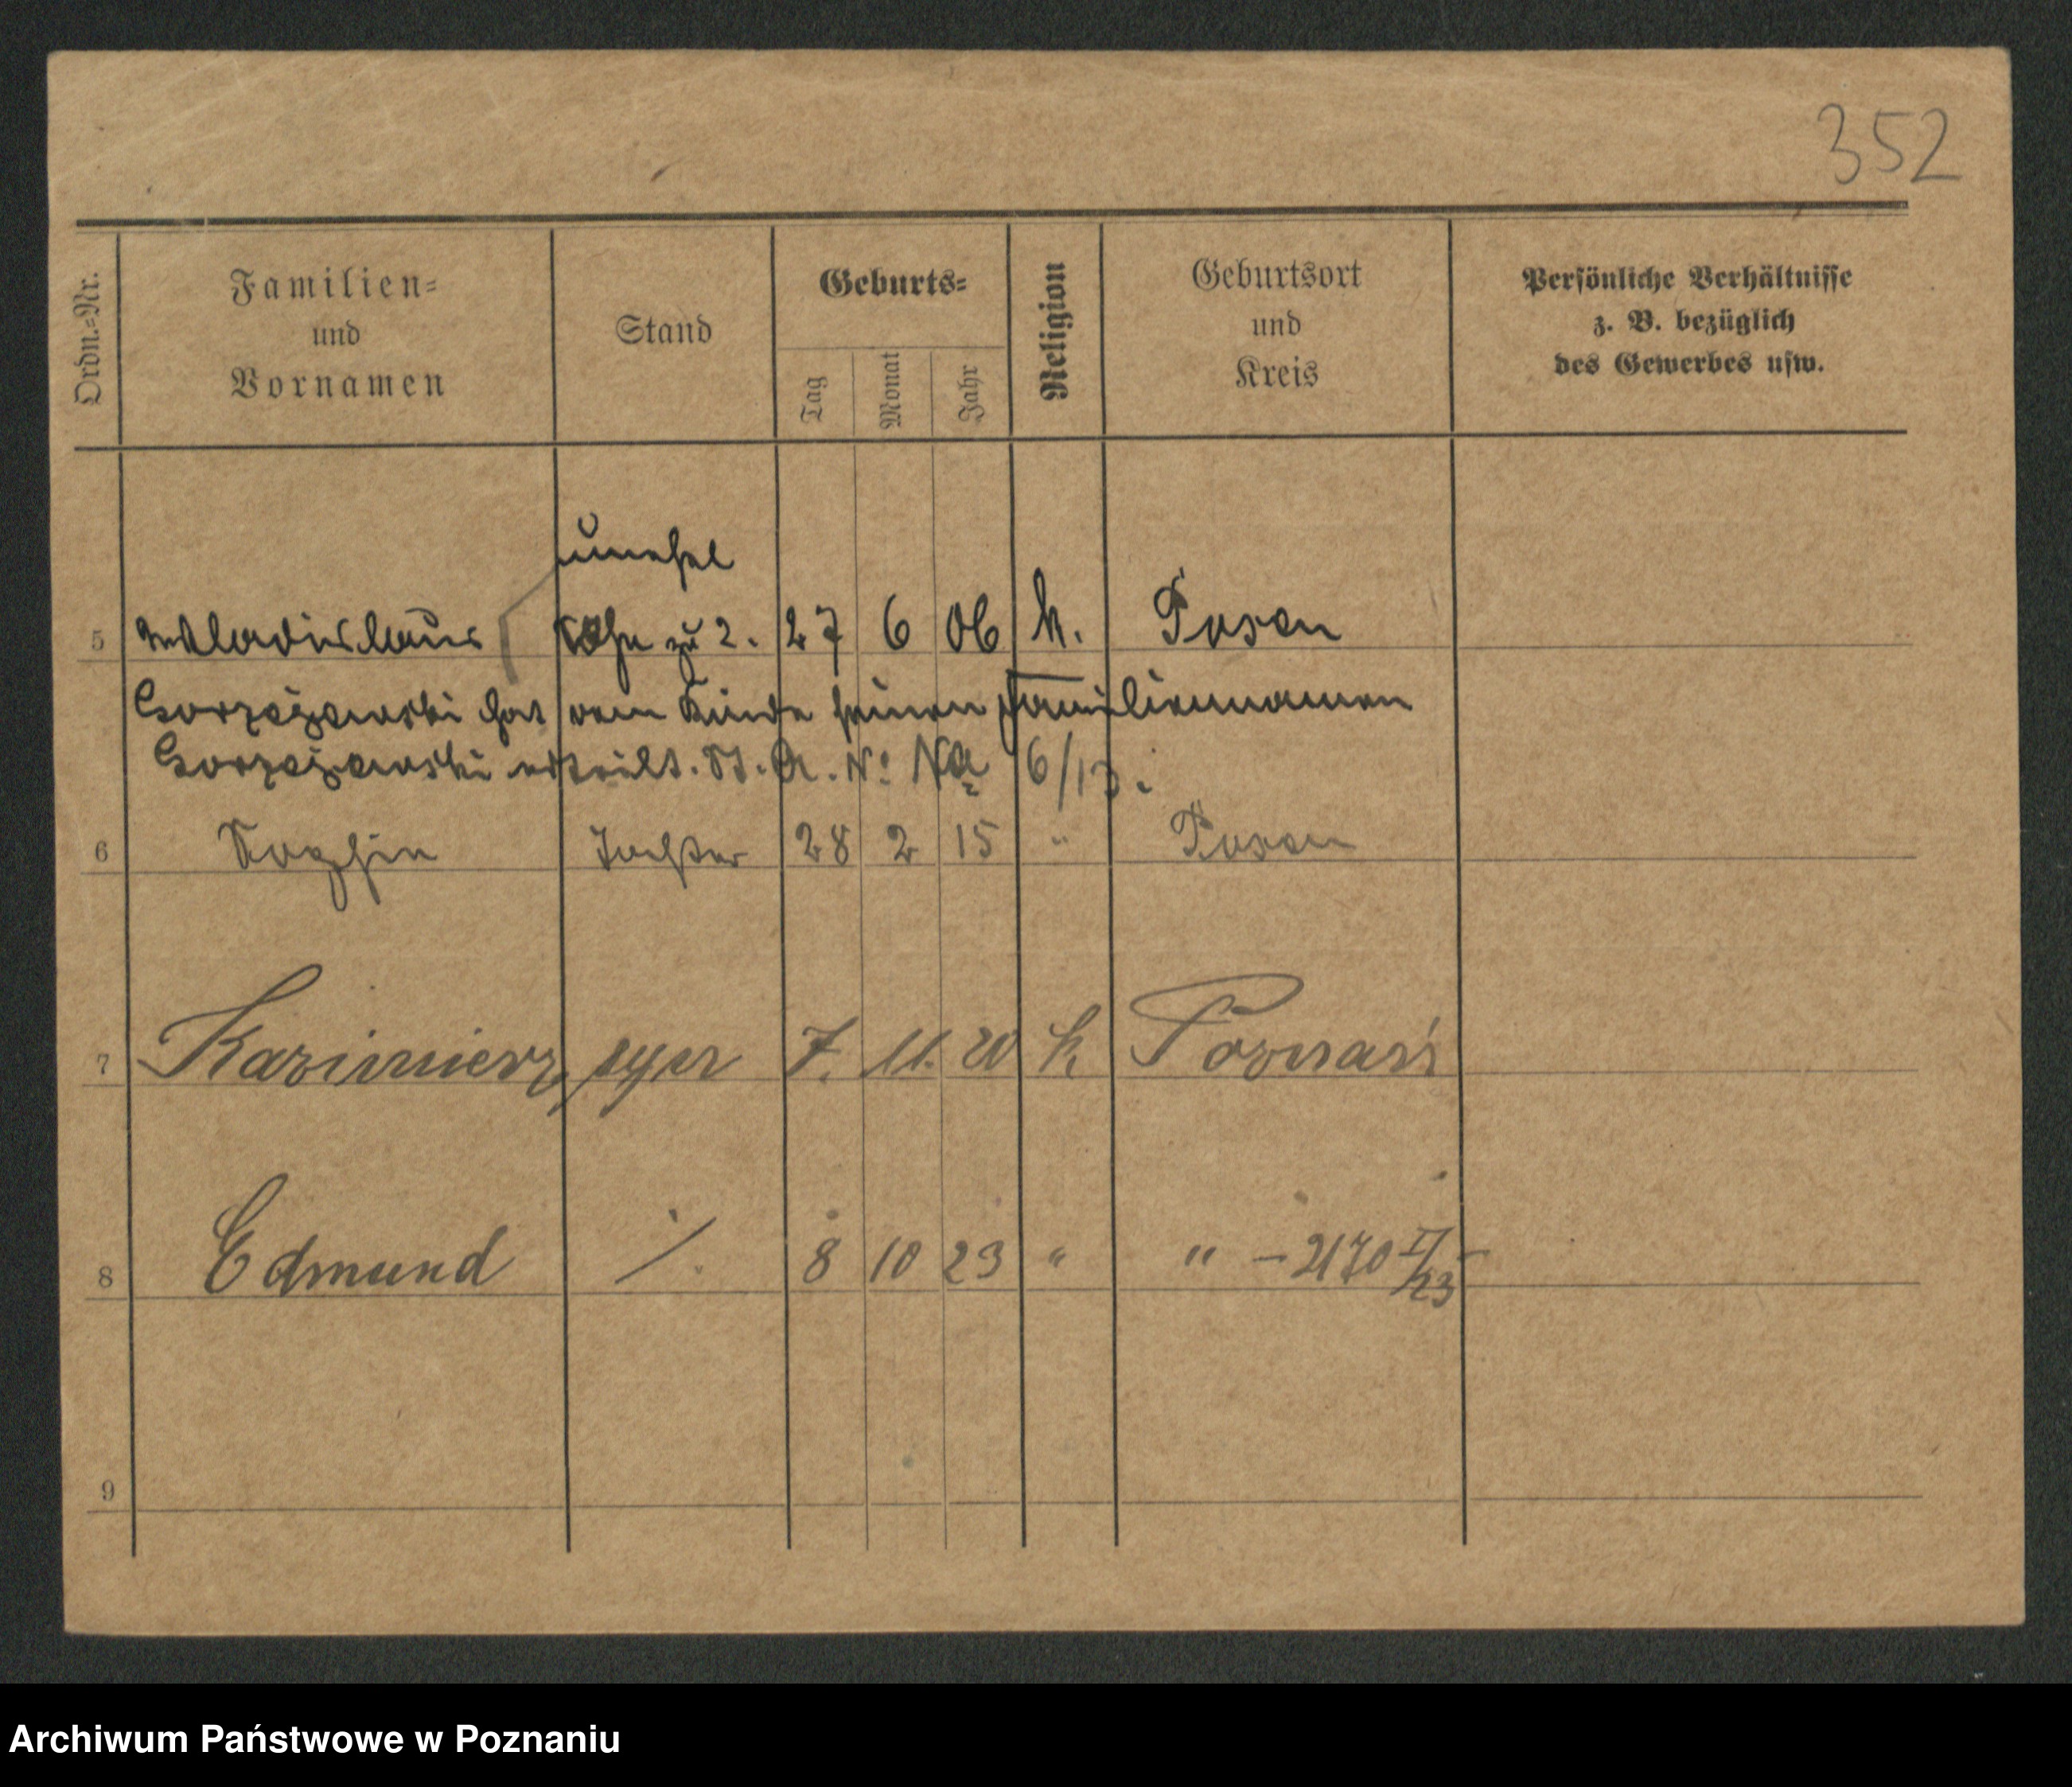 352
Ordn.=Nr.
Familien=
und
Vornamen
Stand
Geburts=
Tag
Monat
Jahr
Religion
Geburtsort
und
Kreis
Persönliche Verhältnisse
z. B. bezüglich
des Gewerbes usw.
unehel
5 Wladislaus Sohn zu 2. 27 6 06 k. Posen
Gorzejewski hat dem Kinde seinen Familiennamen
Gorzejewski erteilt. St. A. No 6/13.
6 Sophie Tochter 28 2 15 " Posen
7 Kazimierz syn 7. 11. 20 k Poznań
8 Edmund ./. 8 10 23 " " – 2170 I/23 –
9
Archiwum Państwowe w Poznaniu